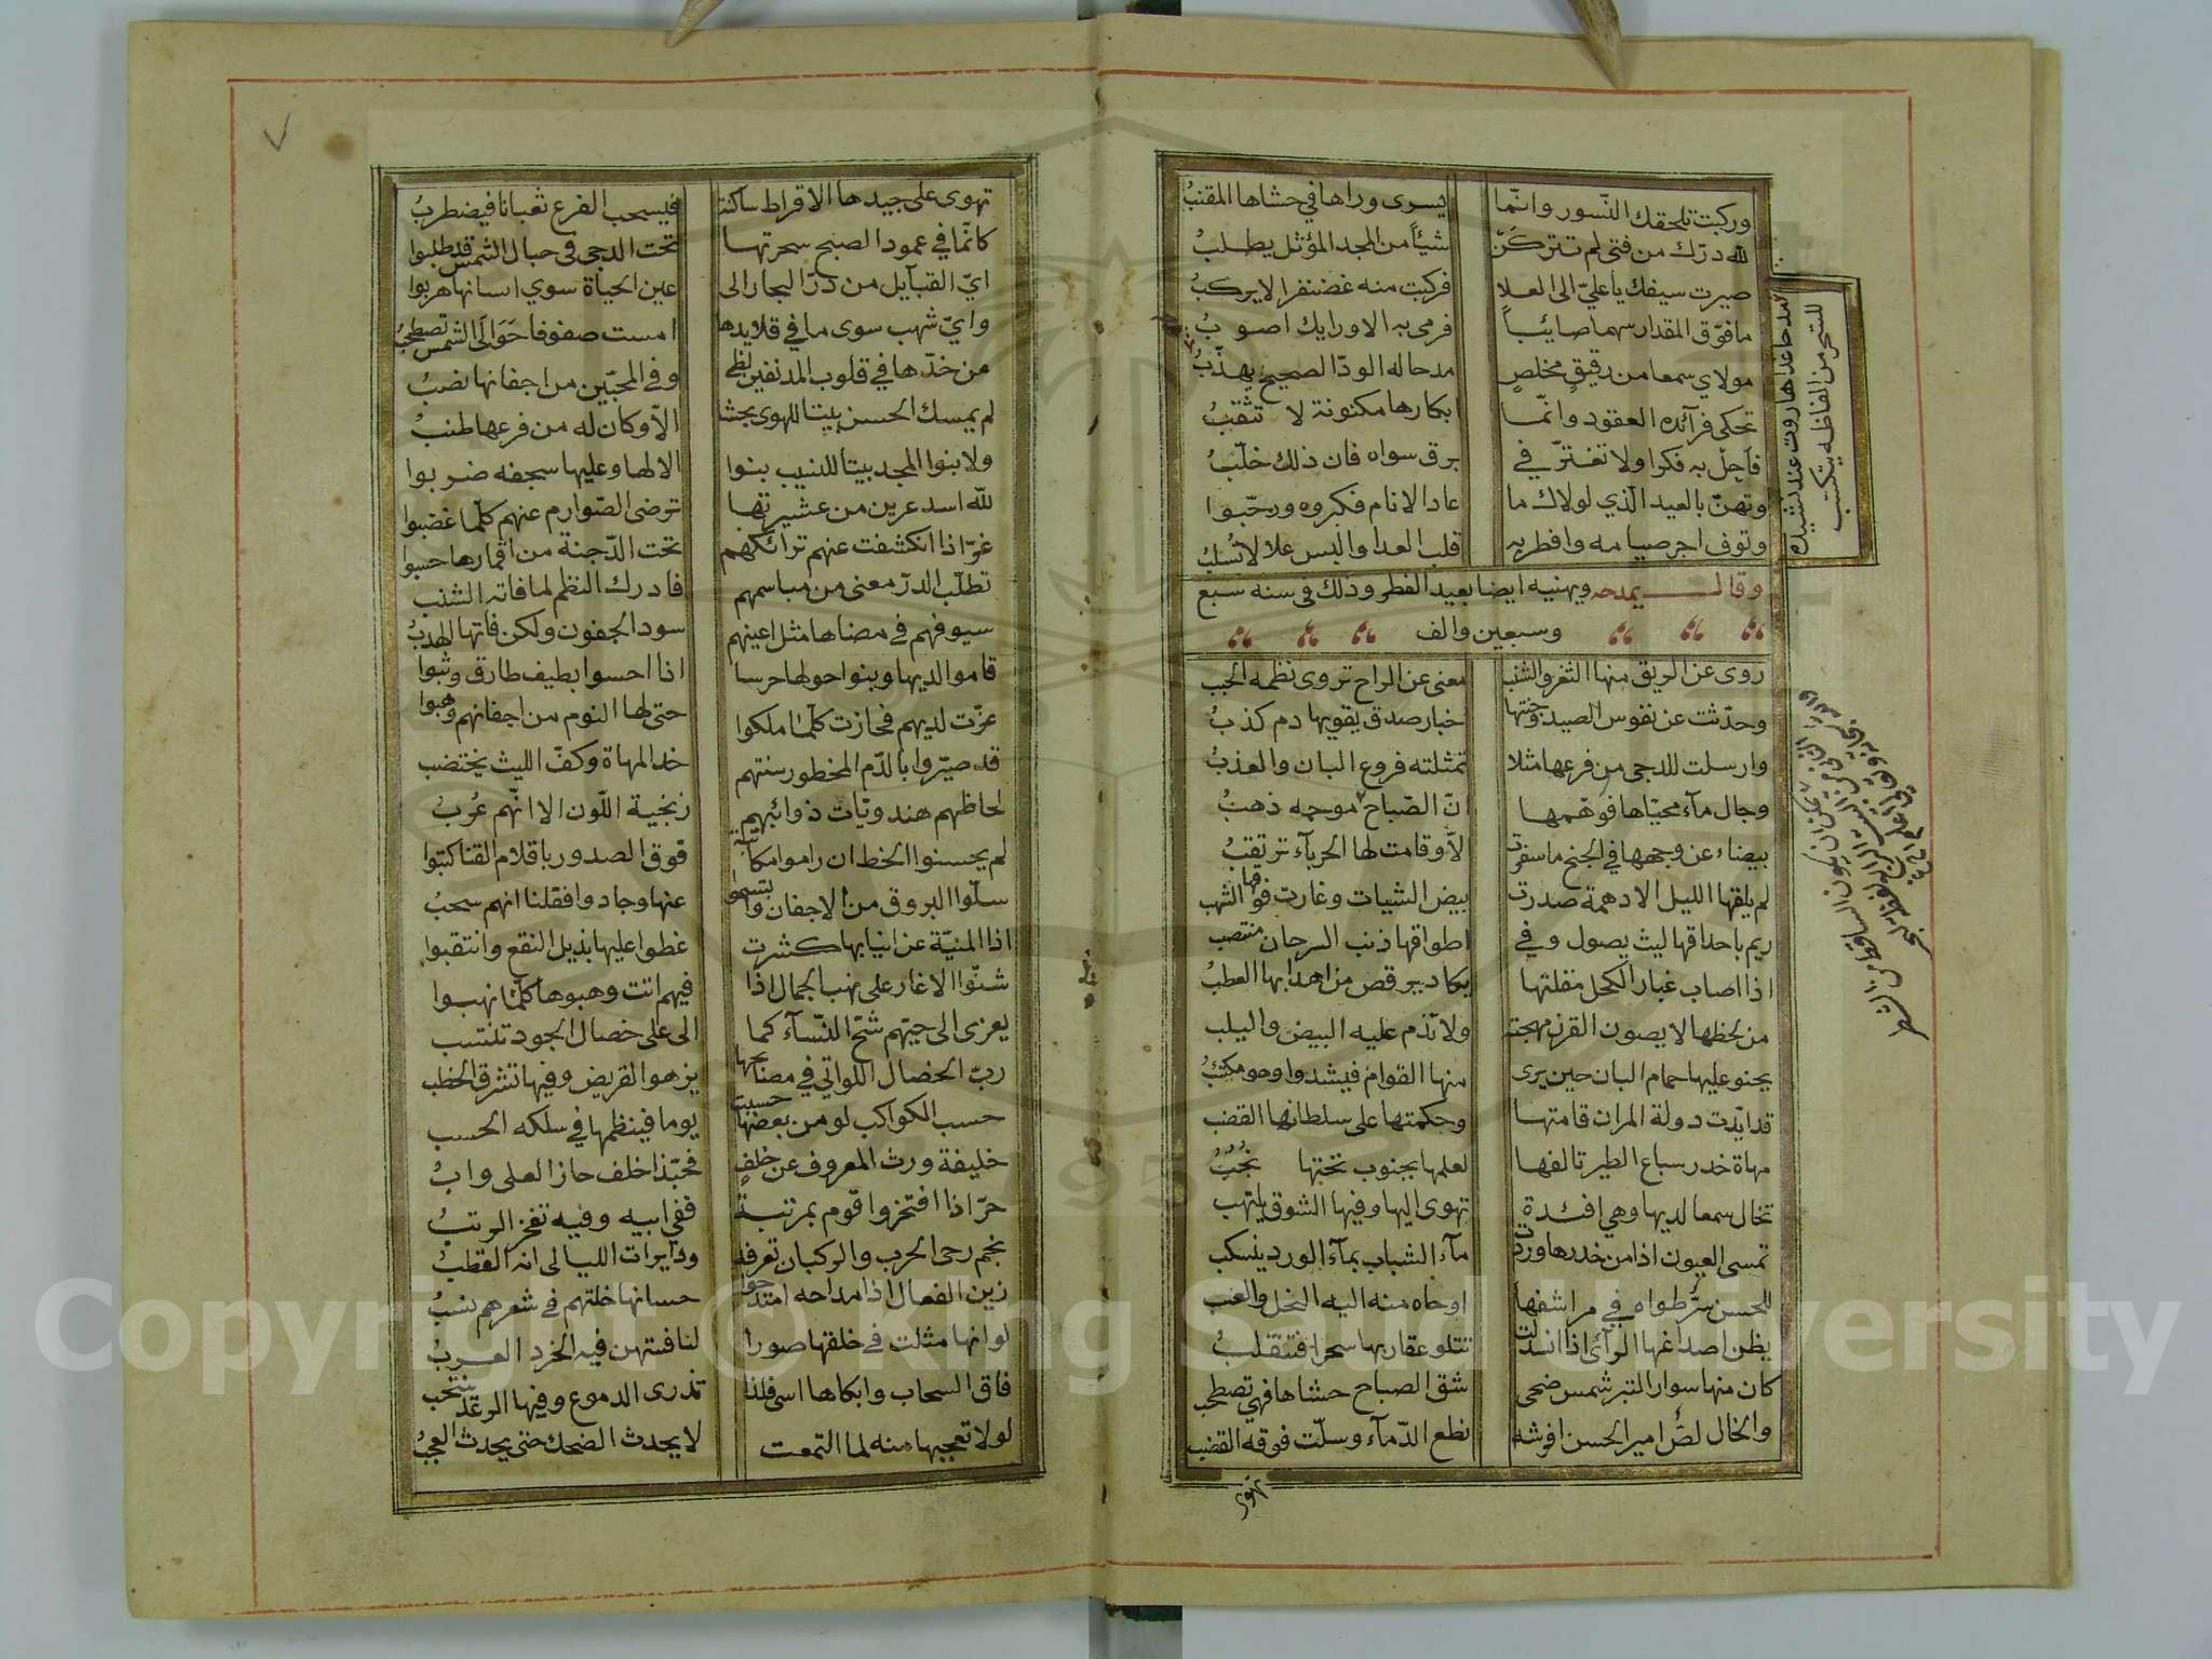 وركبت تلحقك النّسور وانّما يسرى وراها في حشاها المقنبُ
لله درّك من فتى لم تتركَنّ شيأً من المجد المؤثل يطلبُ
صيرت سيفك يا عليّ الى العلا فركبت منه غضنفرا لا يركبُ
ما فوّق المقدار سهما صائباً فرمى به الا ورايك اصوبُ
مولاي سمعا من رقيقٍ مخلصٍ مدحا له الودّ الصحيح يهذّبُ
تحكى فرآئده العقود وانّما ابكارها مكنونة لا تثقبُ
فأجلْ به فكرا ولا تغترّ في برق سواه فان ذلك خلّبُ
وتهنّ بالعيد الّذي لولاك ما عاد الانام فكبروه ورحّبوا
وتوف اجر صيامه وافطر به قلب العدا والبس علا لا تُسلبُ
مدحا غذا هاروت عند نشيده
للسّحر من الفاظه يتكتب
وقال يمدحه ويهنيه ايضا بعيد الفطر وذلك فى سنه سبع
وسبعين والف
روى عن الريق منها الثغر والشنب معنى عن الراح تروى نظمه الحبب
وحدّثت عن نفوس الصيد وجنتها اخبار صدق يقويها دم كذبُ
وارسلت للدجى من فرعها مثلا تمثلته فروع البان والعذبُ
وجال مآء محيّاها فوّهمها انّ الصّباح موجه ذهبُ
بيضاء عن وجهها في الجنح ما سفرت الاّ وقامت لها الحربآء ترتقبُ
لم يلقها الليل الا دهمة صدرت بيض الشيات وغارت فوقها الشهب
ريم باحداقها ليث يصول وفي اطواقها ذنب السرحان منتصب
اذا اصاب غبار الكحل مقلتها يكاد يرقص من اهدابها العطبُ
من لحظها لا يصون القرن مهجته ولا تذم عليه البيض واليلب
يحنو عليها حمام البان حين يرى منها القوام فيشدوا وهو مكتئبُ
قد ايّدت دولة المران قامتها وحكمتها على سلطانها القضب
مهاة خدر سباع الطير تالفها لعلمها بجنوب تحتها نُجُبُ
تخال سمعا لديها وهي افئدة تهوى اليها وفيها الشوق يلتهب
تمسى العيون اذا من خدرها وردت مآء الشباب بمآء الورد ينسكب
للحسن سرّ طواه في مراشفها اوحاه منه اليه النحل والعنب
يظن اصداغها الرآئى اذا انسدلت تتلو عقاربها سحرا فتنقلبُ
كان منها سوار التبر شمس ضحى شق الصباح حشاها فهي تصطخب
والخال لصّ امير الحسن افرشه نطع الدّمآء وسلّت فوقه القضب
تهوى
تهوى على جيدها الاقراط ساكنة فيسحب الفرع ثعبانا فيضطربُ
كانّما في عمود الصبح سحرتها تحت الدجى فى حبال الشمس قد طلبوا
ايّ القبآيل من درّ البحار الى عين الحياة سوي اسنانها هربوا
وايّ شهب سوى ما في قلايدها امست صفوفا حَوَالَى الشمس تصطحبُ
من خدّها في قلوب المدنفين لظى وفى المحبّين من اجفانها نصبُ
لم يمسك الحسن بيتا للهوى بحشا الاّ وكان له من فرعها طنبُ
ولا بنوا المجد بيتا للنسيب بنوا الا لها وعليها سجفه ضربوا
للّه اسد عرين من عشيرتها ترضى الصّوارم عنهم كلّما غضبوا
غرّ اذا انكشفت عنهم ترائكهم تحت الدّجنة من اقمارها حسبوا
تطلّب الدرّ معنى من مباسمهم فادرك النظم لما فاته الشنب
سيوفهم في مضاها مثل اعينهم سود الجفون ولكن فاتها الهدبُ
قاموا لديها وبنوا حولها حرسا اذا احسوا بطيف طارق وثبوا
عزّت لديهم فحازت كلّما ملكوا حتى لها النوم من اجفانهم وهبوا
قد صيّروا بالدّم المحظور سنتهم خد المهاة وكفّ الليث يختضب
لحاظهم هندويّات ذوائبهم زنجية اللّون الا انّهم عُربُ
لم يحسنوا الخط ان راموا مكاتبة فوق الصدور باقلام القنا كتبوا
سلّوا البروق من الاجفان وابتسموا عنها وجادوا فقلنا انهم سحبُ
اذا المنيّة عن انيابها كشرت غطوا عليها بذيل النقع وانتقبوا
شنّوا الاغار على نهب الجمال اذا فيهم اتت وهبوها كلّما نهبوا
يعزى الى حيّهم شحّ النّسآء كما الى على خصال الجود تنتسب
ربّ الخصال اللواتي في مصابحها يزهو القريض وفيها تشرق الخطب
حسب الكواكب لو من بعضها حسبت يوما فينظمها في سلكه الحسب
خليفة ورث المعروف عن خلفٍ فحبّذا خلف حاز العلى وابُ
حرّ اذا افتخروا قوم بمرتبة ففي ابيه وفيه تفخر الرتبُ
نجم رحى الحرب والركبان تعرفه ودايرات الليالى انه القطبُ
زين الفعال اذا مداحه امتدحوا حسانها خلتهم في شعرهم نسبُ
لو انها مثلت في خلقها صورا لنافستهن فيه الخرد العربُ
فاق السحاب وابكاها اسى فلذا تذرى الدموع وفيها الرعد ينتحب
لولا تعجبها منه لما التمعت لا يحدث الضحك حتى يحدث العجبُ